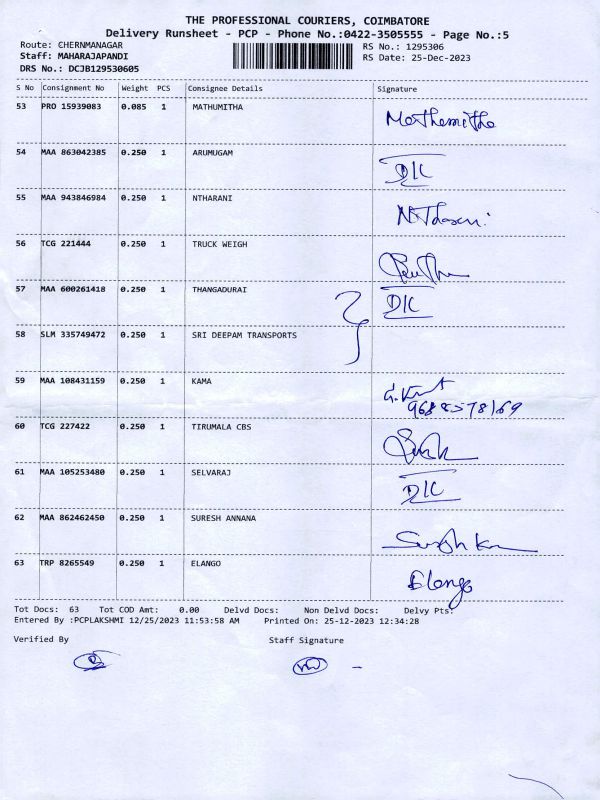 THE PROFESSIONAL COURIERS, COIMBATORE
Delivery Runsheet - PCP - Phone No.:0422-3505555 - Page No.:5
Route: CHERNMANAGAR RS No.: 1295306
Staff: MAHARAJAPANDI RS Date: 25-Dec-2023
DRS No.: DCJB129530605
S No Consignment No Weight PCS Consignee Details Signature
53 PRO 15939083 0.085 1 MATHUMITHA Mathemitha
54 MAA 863042385 0.250 1 ARUMUGAM
55 MAA 943846984 0.250 1 NTHARANI
56 TCG 221444 0.250 1 TRUCK WEIGH
57 MAA 600261418 0.250 1 THANGADURAI
58 SLM 335749472 0.250 1 SRI DEEPAM TRANSPORTS
59 MAA 108431159 0.250 1 KAMA
60 TCG 227422 0.250 1 TIRUMALA CBS
61 MAA 105253480 0.250 1 SELVARAJ
62 MAA 862462450 0.250 1 SURESH ANNANA
63 TRP 8265549 0.250 1 ELANGO Elango
Tot Docs: 63 Tot COD Amt: 0.00 Delvd Docs: Non Delvd Docs: Delvy Pts:
Entered By :PCPLAKSHMI 12/25/2023 11:53:58 AM Printed On: 25-12-2023 12:34:28
Verified By Staff Signature